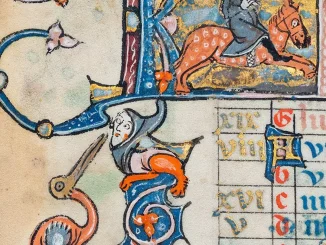 xix G
viii A v
b v
xvi c
v d